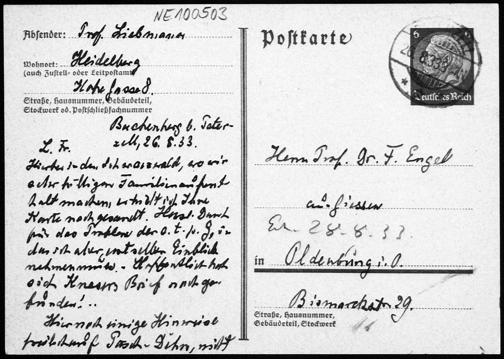 NE100503
Absender: Prof. Liebmann
Wohnort: Heidelberg
(auch Zustell- oder Leitpostamt)
Straße, Hausnummer, Gebäudeteil,
Stockwerk od. Postschließfachnummer
Buchenberg b. Peter-
zell, 26.8.33.
L. Fr.
Hierher in den Schwarzwald, wo wir
Familienaufent
halt machen, erhielt ich Ihre
Karte nachgesandt. Herzl. Dank
für das Problem der
das ich aber erst selber Einblick
nehmen muss. - Hoffentlich hat
sich Knesers Brief noch ge-
funden!..
Hier noch einige Hinweise
Pasch-Dehn, mit
Postkarte
6
6
Deutsches Reich
Herrn Prof. Dr. F. Engel
Giessen
28-8-33
in Oldenburg i. O.
Bismarckstr. 29.
Straße, Hausnummer,
Gebäudeteil, Stockwerk